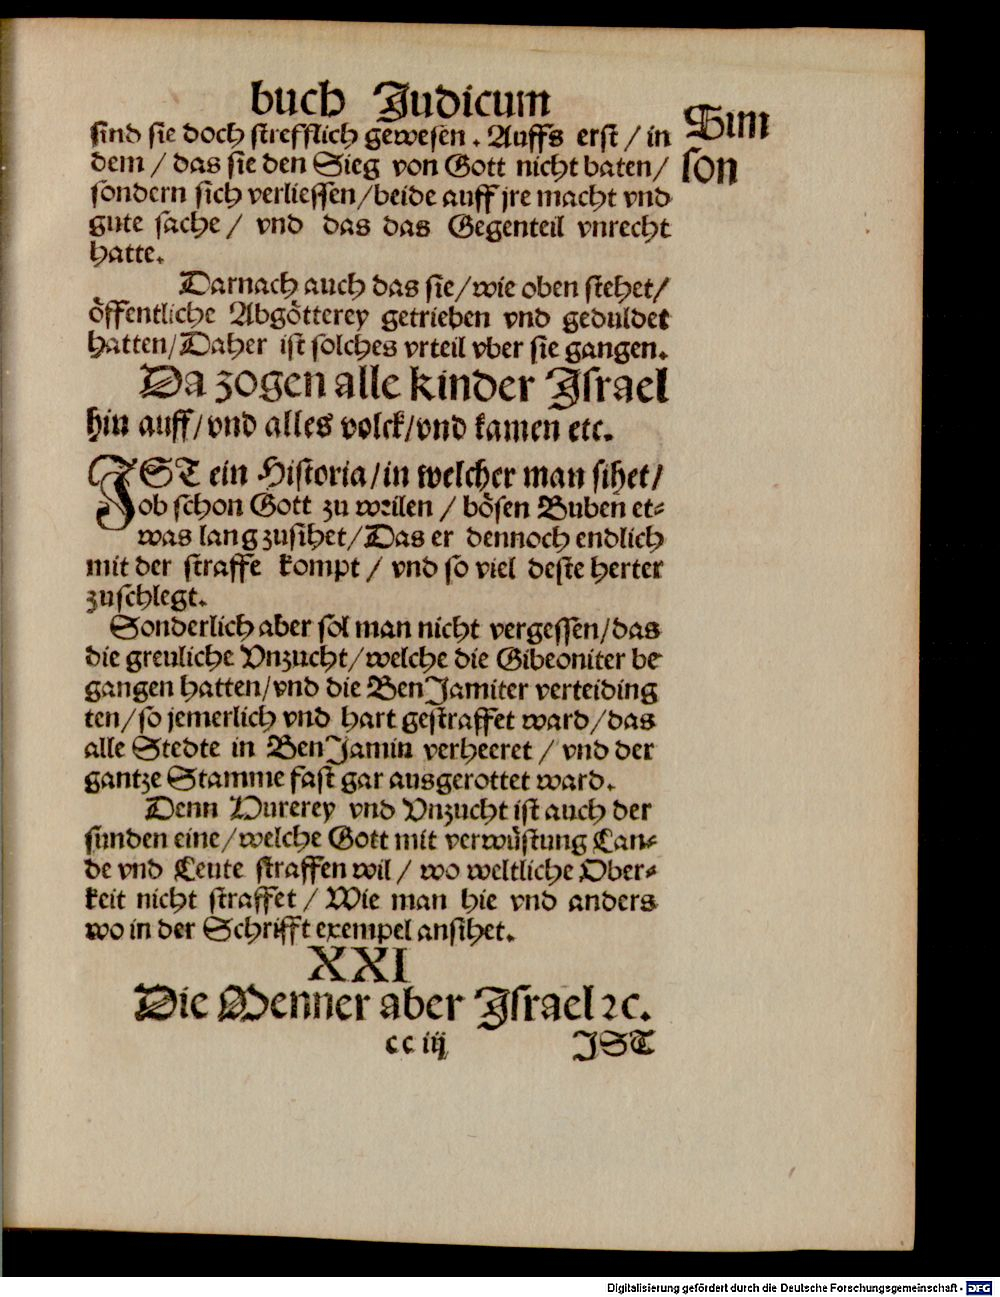 buch Judicum
Sim
son
sind sie doch strefflich gewesen. Auffs erst / in
dem / das sie den Sieg von Gott nicht baten/
sondern sich verliessen/beide auff jre macht vnd
gute sache / vnd das das Gegenteil vnrecht
hatte.
Darnach auch das sie/wie oben stehet/
öffentliche Abgötterey getrieben vnd geduldet
hatten/Daher ist solches vrteil vber sie gangen.
Da zogen alle kinder Israel
hin auff/vnd alles volck/vnd kamen etc.
IST ein Historia/in welcher man sihet/
ob schon Gott zu weilen / bösen Buben et-
was lang zusihet/Das er dennoch endlich
mit der straffe kompt / vnd so viel deste herter
zuschlegt.
Sonderlich aber sol man nicht vergessen/das
die greuliche Vnzucht/welche die Gibeoniter be
gangen hatten/vnd die BenJamiter verteiding
ten/so jemerlich vnd hart gestraffet ward/das
alle Stedte in BenJamin verheeret / vnd der
gantze Stamme fast gar ausgerottet ward.
Denn Hurerey vnd Vnzucht ist auch der
sünden eine/welche Gott mit verwüstung Lan-
de vnd Leute straffen wil / wo weltliche Ober-
keit nicht straffet / Wie man hie vnd anders
wo in der Schrifft exempel ansihet.
XXI
Die Menner aber Israel ꝛc.
cc iij
IST
Digitalisierung gefördert durch die Deutsche Forschungsgemeinschaft - DFG